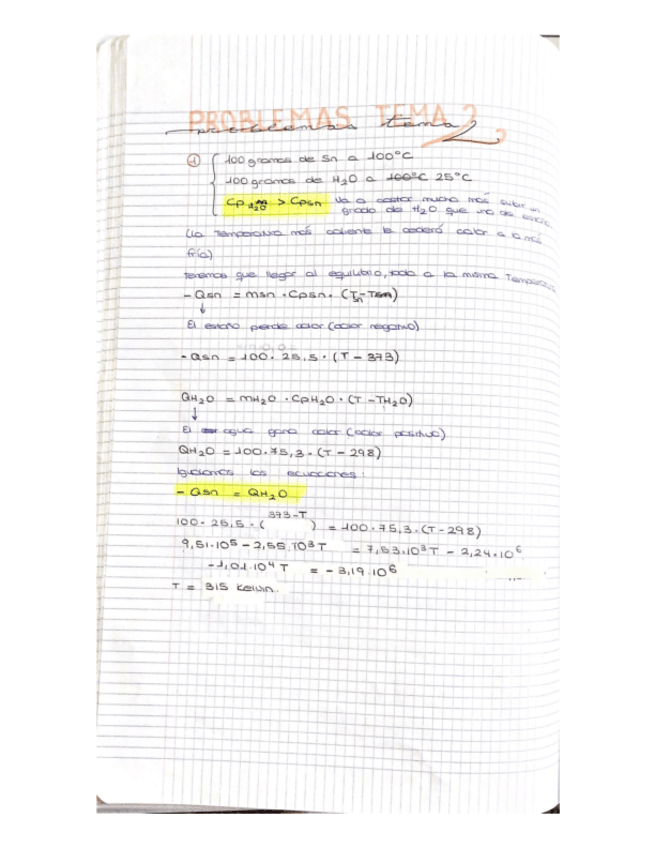 PROBLEMAS TEMA 2
problemas tema 2
1 100 gramos de Sn a 100°C
100 gramos de H2O a 100°C 25°C
Cp H2O > Cpsn Va a costar mucho más subir un
grado de H2O que uno de estaño
(la Temperatura más caliente le cederá calor a la más
fría)
tenemos que llegar al equilibrio, todo a la misma Temperatura
- Qsn = msn · Cpsn · (T - Tsn)
↓
El estaño pierde calor (calor negativo)
- Qsn = 100 · 25,5 · (T - 373)
QH2O = mH2O · CpH2O · (T - TH2O)
↓
El agua gana calor (calor positivo)
QH2O = 100 · 75,3 · (T - 298)
Igualamos las ecuaciones:
- Qsn = QH2O
100 · 25,5 · (373-T) = 100 · 75,3 · (T - 298)
9,51·10⁵ - 2,55·10³T = 7,53·10³T - 2,24·10⁶
-1,01·10⁴T = -3,19·10⁶
T = 315 Kelvin.